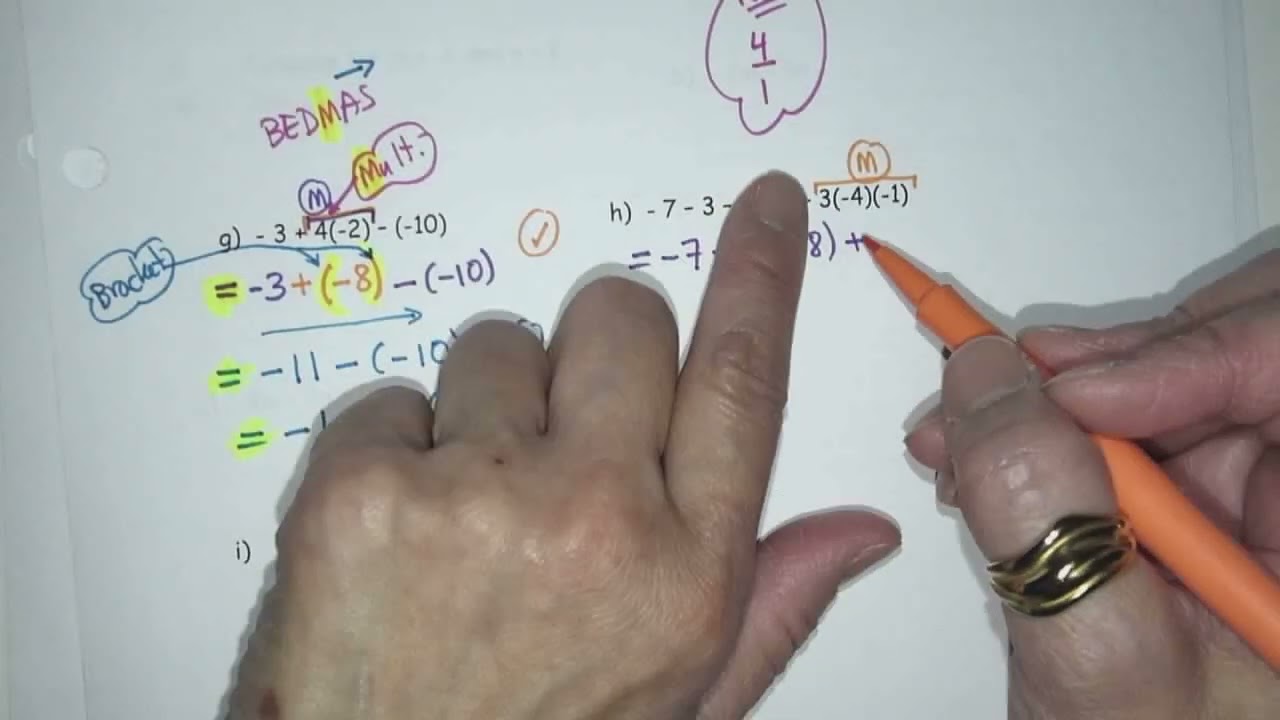 4
1
BEDMAS
Mult.
M
M
g) - 3 + 4(-2) - (-10)
h) - 7 - 3 - 3(-4)(-1)
✓
Bracket
= -3 + (-8) - (-10)
= -7 8) +
= -11 - (-10
= -1
i)